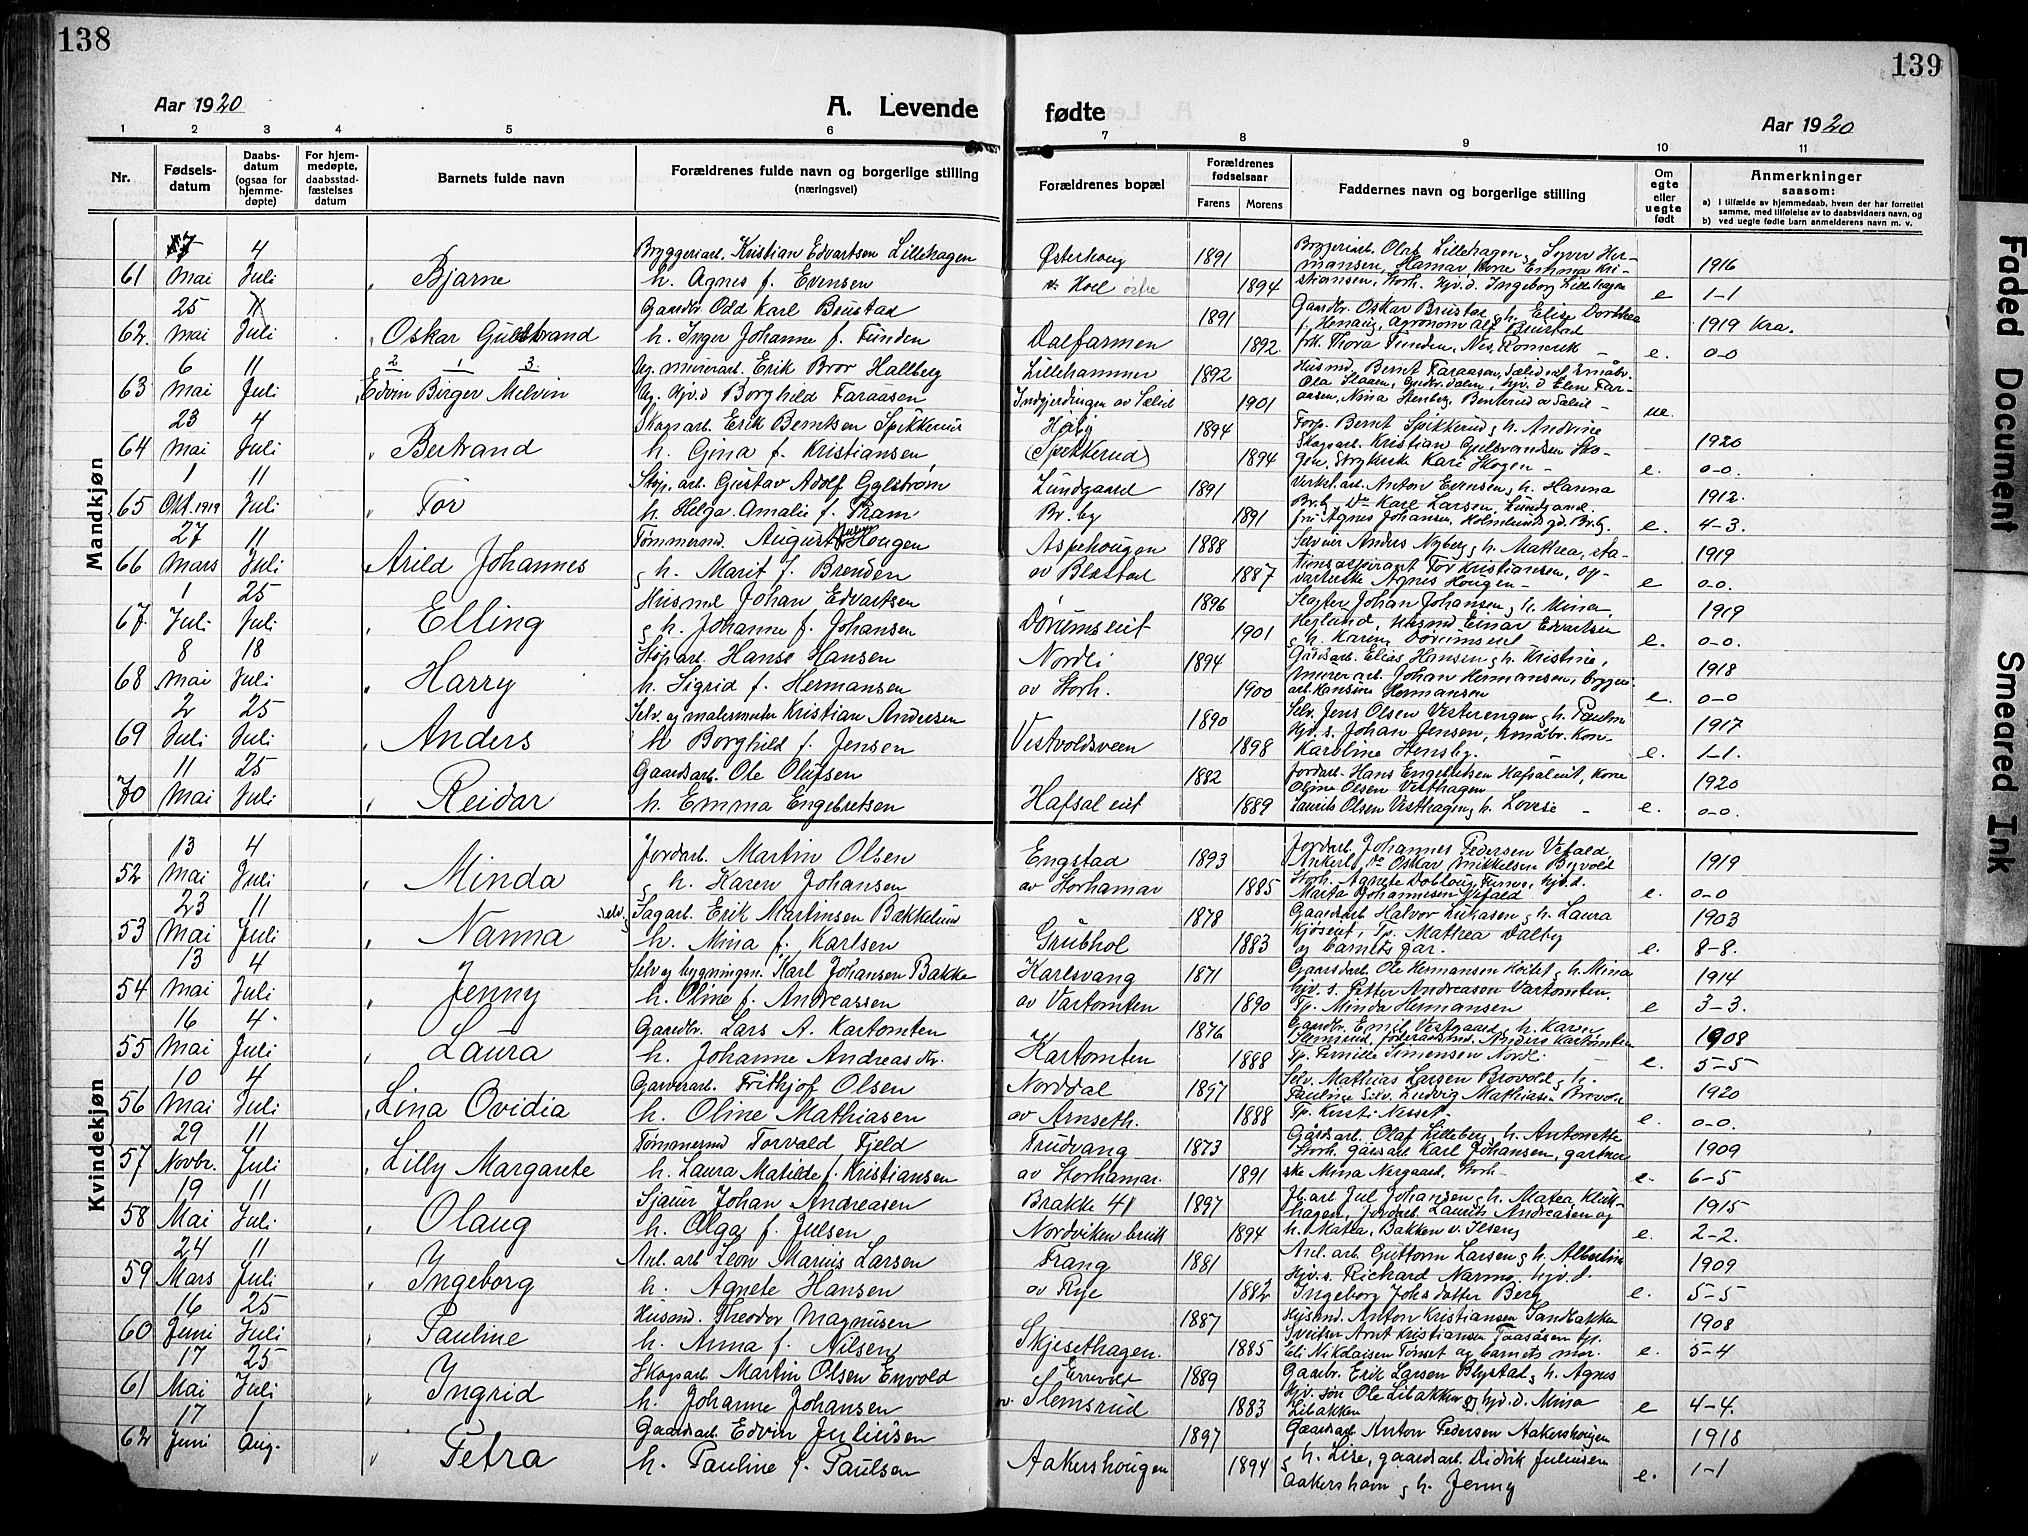 138
Aar 1920
A. Levende
1 2 3 4 5 6
Nr.
Fødsels-
datum
Daabs-
datum
(ogsaa for
hjemme-
døpte)
For hjem-
medøpte,
daabsstad-
fæstelses
datum
Barnets fulde navn
Forældrenes fulde navn og borgerlige stilling
(næringsvei)
Mandkjøn
7 4 Bryggeriarb. Kristian Edvartsen Lillehagen
61 Mai Juli Bjarne h. Agnes f. Evensen
25 11 Gaardbr. Odd Karl Brustad
62. Mai Juli Oskar Guldbrand h. Inger Johanne f. Tunden
6 11 2 1 3 Ug. murerarb. Erik Bror Hallberg
63 Mai Juli Edvin Birger Melvin Ug. hjv.d Borghild Faraasen
23 4 Skogsarb. Erik Berntsen Spikkerud
64 Mai Juli Bertrand h. Gina f. Kristiansen
1 11 Støp. arb. Gustav Adolf
65 Okt. 1919 Juli Tor h. Helga Amalie f. Fram
27 11 Tømmermd. August Hougen
66 Mars Juli Arild Johannes h. Marit f. Brenden
1 25 Husmd Johan Edvartsen
67. Juli Juli Elling h. Johanne f. Johansen
8 18 Støp.arb. Hans Hansen
68 Mai Juli Harry h. Sigrid f. Hermansen
2 25 Selv. og malermester Kristian Andersen
69 Juli Juli Anders h Borghild f. Jensen
11 25 Gaardsarb. Ole Olufsen
70 Mai Juli Reidar h. Emma Engebretsen
Kvindekjøn
13 4 Jordarb. Martin Olsen
52 Mai Juli Minda h. Karen Johansen
23 11 Selv. Sagarb. Erik Martinsen Bækkelund
53 Mai Juli Nanna h. Mina f. Karlsen
13 4 Selv og bygningsn. Karl Johansen Bakke
54 Mai Juli Jenny h. Oline f. Andreassen
16 4 Gaardbr. Lars A. Kartomten
55 Mai Juli Laura h. Johanne Andreasdtr.
10 4 Garverarb. Frithjof Olsen
56 Mai Juli Lina Ovidia h. Oline Mathiasen
29 11 Tømmermd Torvald Fjeld
57 Novbr. Juli Lilly Margarete h. Laura Matilde f. Kristiansen
19 11 Sjauer Johan Andreasen
58 Mai Juli Olaug h. Olga f. Julsen
24 11 Anl. arb Leon Marius Larsen
59 Mars Juli Ingeborg h. Agnete Hansen
16 25 Husmd. Theodor Magnusen
60 Juni Juli Pauline h. Anna f. Nilsen
17 25 Skogsarb. Martin Olsen Envold
61 Mai Juli Ingrid h. Johanne Johansen
17 1 Gaardsarb. Edvin Juliusen
62 Juni Aug. Petra h. Pauline f. Paulsen
139
fødte
Aar 1920
7 8 9 10 11
Forældrenes bopæl
Forældrenes
fødselsaar
Farens Morens
Faddernes navn og borgerlige stilling
Om
egte
eller
uegte
født
Anmerkninger
saasom:
a) i tilfælde av hjemmedaab, hvem der har forrettet
samme, med tilføielse av to daabsvidners navn, og
b) ved uegte fødte barn anmelderens navn m. v.
Østerhoug 1891 Bryggeriarb. Olaf Lillehagen, Syver Her-
mansen, Hamar, kone Emma Kri- 1916
v. Hoel 1894 stiansen, Storh. hjv.d. Ingeborg Lillehagen e 1-1
1891 Gaardbr. Oskar Brustad h. Elise Dorthea
f. Agronom Alf Brustad 1919 Kra.
Dalfarmen 1892. frk. Thora Tunden, Nes, Romerik - e. 0-0
Lillehammer 1892 Husmd. Bernt Faraasen, Smaabr.
Ola dalen, hjv. d Elen Far-
1901 aasen, Nina Stenberg, ue.
Høiby 1894 Forp. Bernt Spikkerud h. Andrine
Skogsarb. Kristian Sko- 1920
(Spikkerud) 1894 gen, Strykerske Kari Skogen - e. 0-0.
Lundgaard 1891 Verkst.arb. Anton Evensen h. Hanna
Br.b. Karl Larsen, Lundgaard. 1912.
Br. by 1891 fru Agnes Johansen, e. 4-3.
Aspehougen 1888 Selveier Anders Nyberg h. Mathea, sta-
tionsaspirant Tor Kristiansen, op- 1919
av Blæstad 1887 varterske Agnes Hougen - e 0-0.
1896 Slagter Johan Johansen h. Mina,
Dørumseiet Husmd Einar Edvartsen 1919
1901 h. Karen Dørumseiet e. 0-0.
Nordli 1894 Gaardsarb. Elias Hansen h. Kristine,
Murerarb. Johan Hermansen, 1918
av Storh. 1900 Hermansen e. 0-0
1890 Selv. Jens Olsen Vesterengen h. Pauline
Vestvoldsveen hjv. s. Johan Jensen, kone 1917
1898 Karoline Stensby. - e. 1-1.
1882 Jordarb. Hans Engebretsen Hafsaleiet, kone
Oline Olsen Vesthagen 1920
Hafsal eiet 1889 Laurits Olsen Vesthagen h. Lovise - e. 0-0.
Engstad 1893 Jordarb. Johannes Pedersen
Oskar Mikkelsen 1919
av Storhamar 1885 Storh. Agnete hjv.d.
Marta Johannesen e. 0-0
1878 Gaardsarb. Halvor Lukasen h. Laura
Mathea Dalby 1903
Grubhol 1883 og barnets far. e. 8-8.
Karlsvang 1871 Gaardarb. Ole Hermansen h. Mina
hjv. s. Petter Andreasen Vartomten. 1914
av Vartomten 1890 Minda Hermansen e 3-3.
1876 Gaardbr. Emil Vestgaard h. Karen
Anders Kartomten 1908
Kartomten 1888 Tp. Pernille Simensen Nordli e. 5-5
Norddal 1897 Selv. Mathias Larsen Brovold h.
Pauline Selv. Ludvig Mathiasen Brovold 1920
av Arnseth. 1888 Tp. Kirsti Nesset - e. 0-0.
Trudvang 1873 Gaardsarb. Olaf Lilleberg, h. Antonette
Storh. gaardsarb Karl Johansen, gartner 1909
av Storhamar. 1891 ske Mina Nergaard, Storh- e. 6-5
Brakke 41 1897 Jul Johansen h. Matea
hagen, Jordarb. Laurits Andreasen og 1915
Nordviken bruk 1894 h. Matea, Bakken v. Ilseng e. 2-2.
Frang 1881 Anl. arb. Guttorm Larsen h. Albertine
hjv. s. Richard Narmo, hjv. d. 1909
av Rye 1882 Ingeborg Johsdatter Berg e. 5-5
1887 Husmd. Anton Kristiansen Sandbakken
Sveitser Arnt Kristiansen 1908
Skjesethagen. 1885 Eli Nikolaisen Tønset og barnets mor. e. 5-4
1889 Gaardbr. Erik Larsen Blystad h. Agnes
hjv. søn Ole Libakken og hjv. d. Mina
av Slemsrud 1883 Libakken e 4-4.
1897 Gaardsarb Anton Pedersen Aakershougen 1918
Aakershougen 1894 h. Lise, gaardsarb. Didrik Juliusen
Aakershavn h. Jenny e. 1-1
Faded Document
Smeared Ink